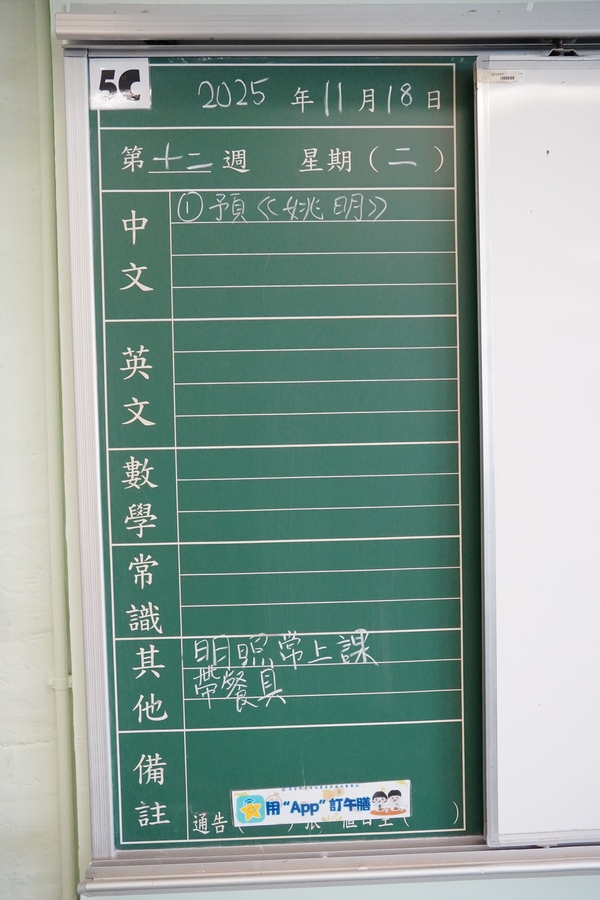 5C
2025 年 11 月 18 日
第 十二 週 星期 ( 二 )
中文
① 預《姚明》
英文
數學
常識
其他
明日照常上課
帶餐具
備註
用“App”訂午膳
通告 (
)